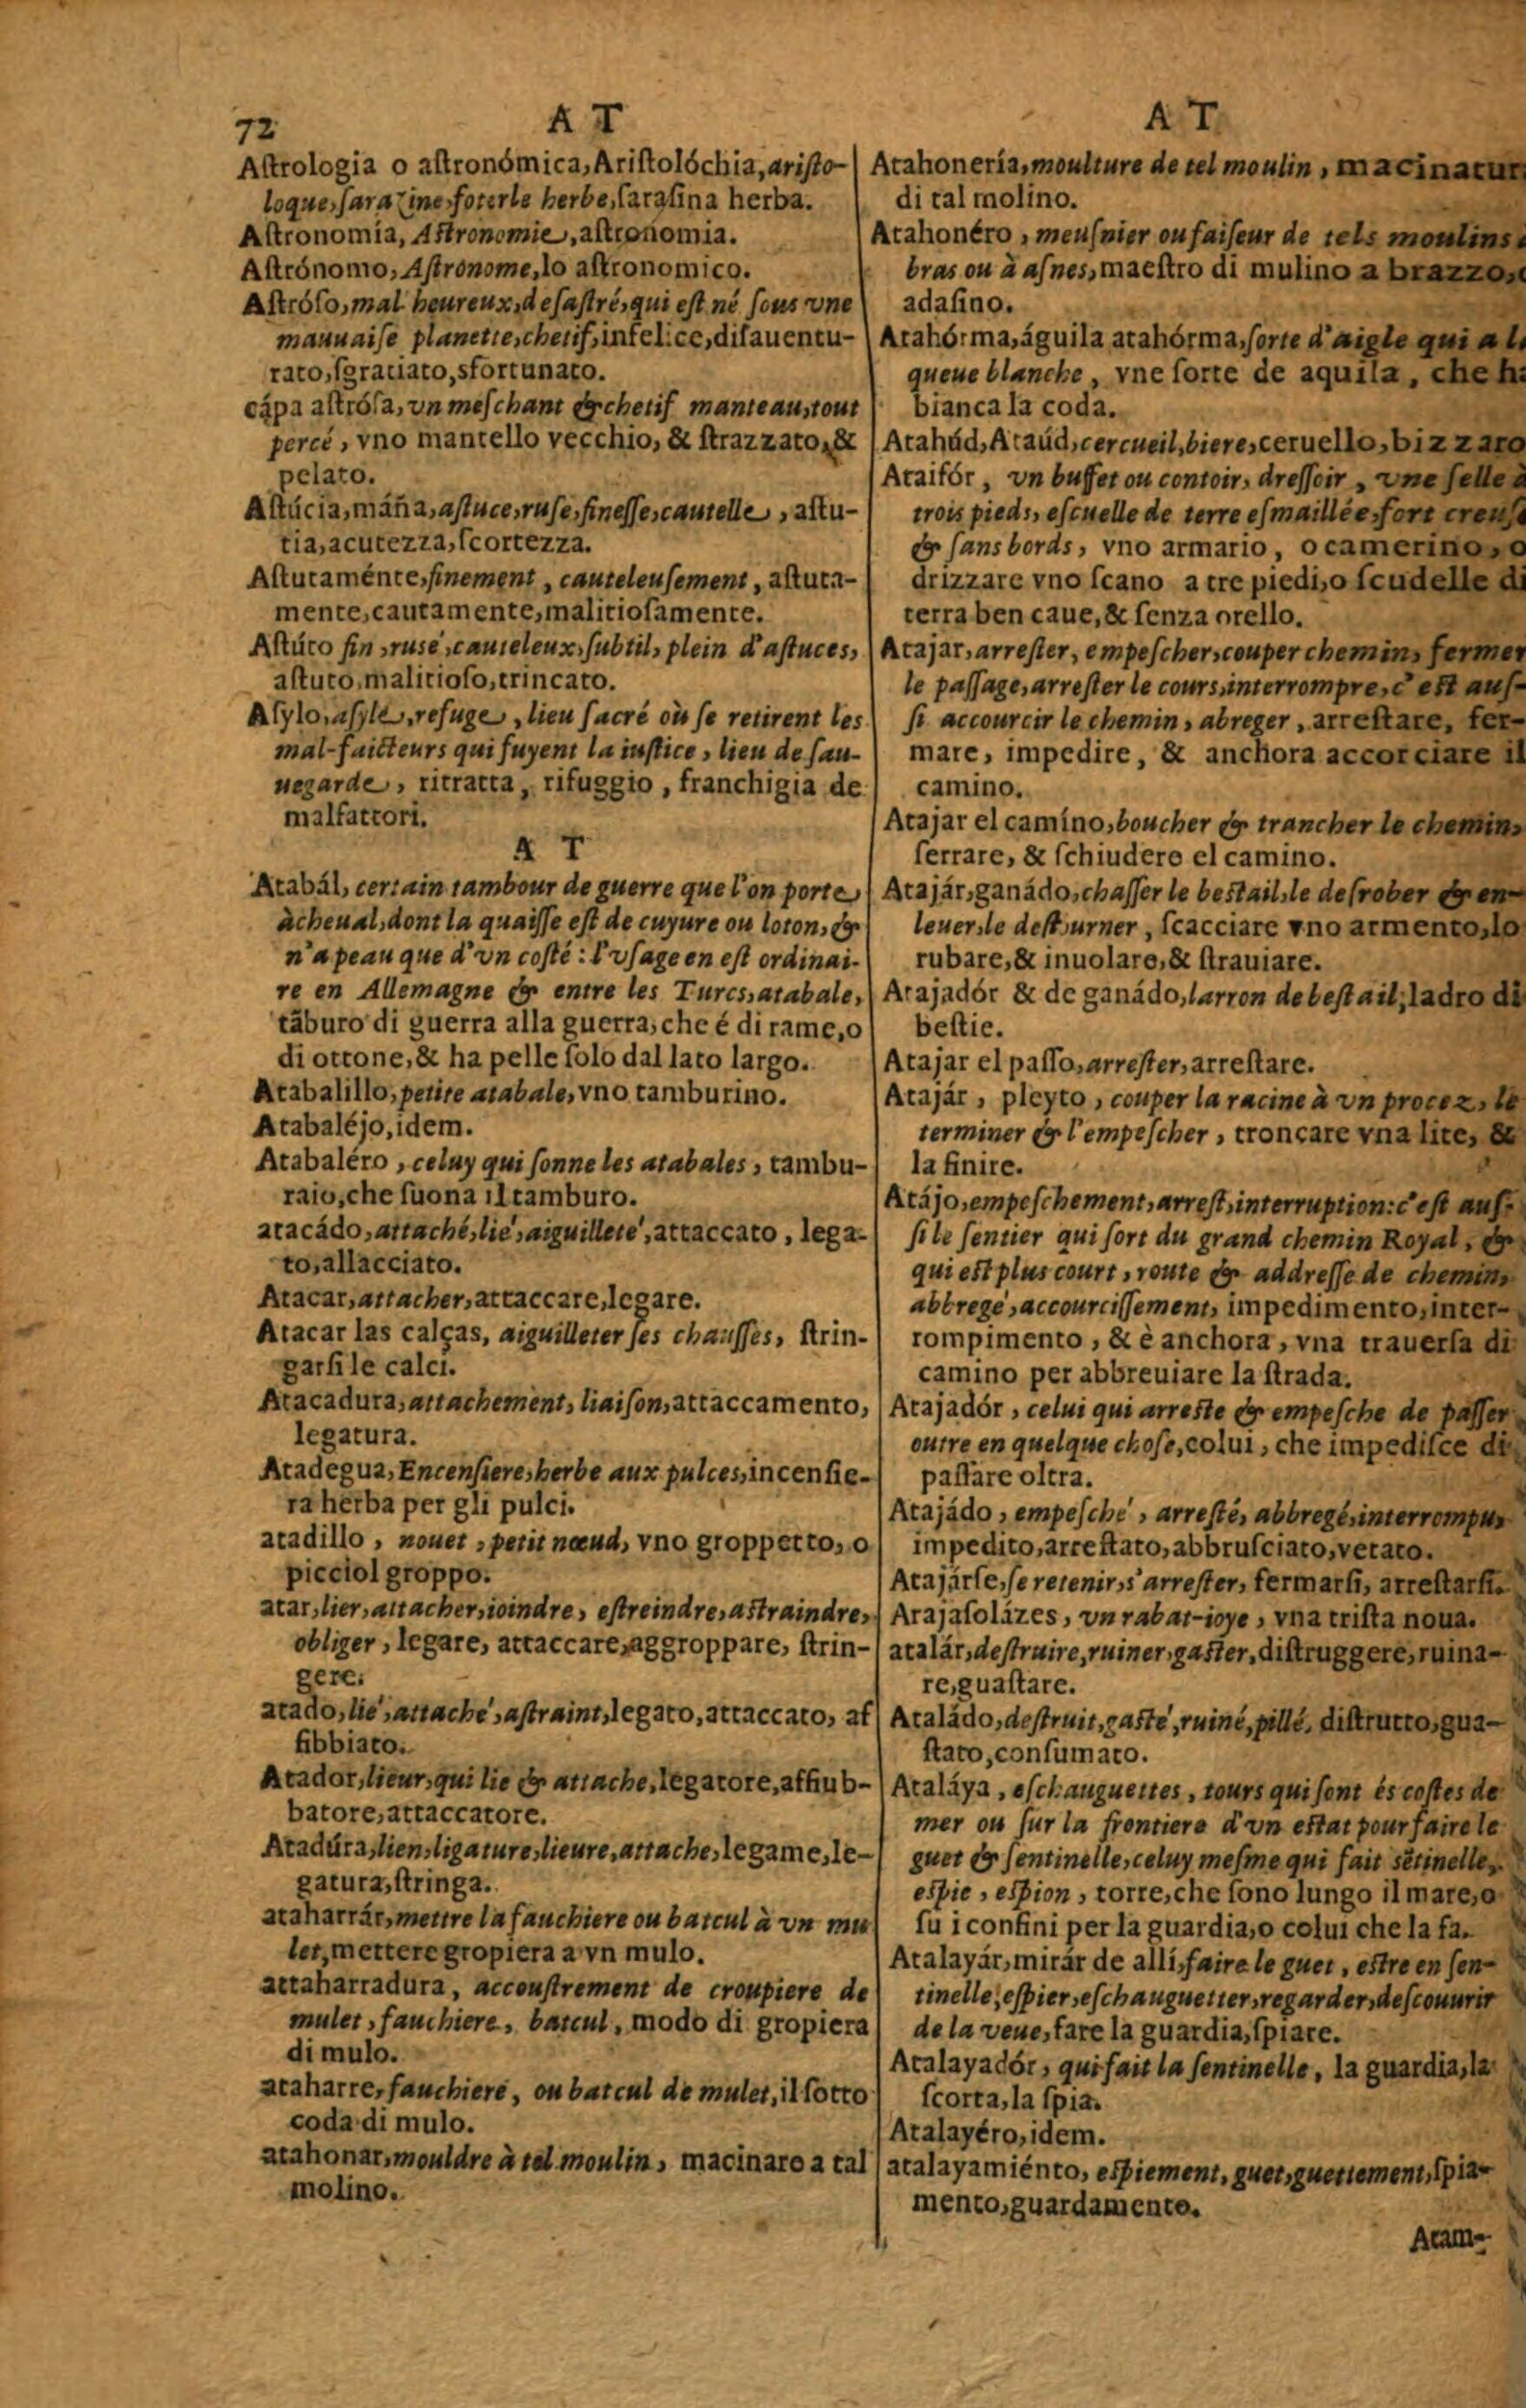 72
A T
Aſtrologia o aſtronómica, Ariſtolóchia, ariſto-
loque, ſarazine, foterle herbe, ſaraſina herba.
Aſtronomía, Aſtronomie, aſtronomia.
Aſtrónomo, Aſtronome, lo aſtronomico.
Aſtróſo, mal heureux, deſaſtré, qui eſt né ſous vne
mauuaiſe planette, chetif, infelice, diſauentu-
rato, ſgratiato, sfortunato.
cápa aſtróſa, vn meſchant & chetif manteau, tout
percé, vno mantello vecchio, & ſtrazzato, &
pelato.
Aſtúcia, máña, aſtuce, ruſe, fineſſe, cautelle, aſtu-
tia, acutezza, ſcortezza.
Aſtutaménte, finement, cauteleuſement, aſtuta-
mente, cautamente, malitioſamente.
Aſtúto fin, ruse, cauteleux, ſubtil, plein d'aſtuces,
aſtuto, malitioſo, trincato.
Aſylo, aſyle, refuge, lieu ſacré où ſe retirent les
mal-faicteurs qui fuyent la iuſtice, lieu de ſau-
uegarde, ritratta, rifuggio, franchigia de
malfattori.
A T
Atabál, certain tambour de guerre que l'on porte
à cheual, dont la quaiſſe eſt de cuyure ou loton, &
n'a peau que d'vn coſté: l'vſage en eſt ordinai-
re en Allemagne & entre les Turcs, atabale,
tãburo di guerra alla guerra, che é di rame, o
di ottone, & ha pelle ſolo dal lato largo.
Atabalillo, petite atabale, vno tamburino.
Atabaléjo, idem.
Atabaléro, celuy qui ſonne les atabales, tambu-
raio, che ſuona il tamburo.
atacádo, attaché, lié, aiguilleté, attaccato, lega-
to, allacciato.
Atacar, attacher, attaccare, legare.
Atacar las calças, aiguilleter ſes chauſſes, ſtrin-
garſi le calci.
Atacadura, attachement, liaiſon, attaccamento,
legatura.
Atadegua, Encenſiere, herbe aux pulces, incenſie-
ra herba per gli pulci.
atadillo, nouet, petit nœud, vno groppetto, o
picciol groppo.
atar, lier, attacher, ioindre, eſtreindre, aſtraindre,
obliger, legare, attaccare, aggroppare, ſtrin-
gere.
atado, lié, attaché, aſtraint, legato, attaccato, af
fibbiato.
Atador, lieur, qui lie & attache, legatore, affiub-
batore, attaccatore.
Atadúra, lien, ligature, lieure, attache, legame, le-
gatura, ſtringa.
ataharrár, mettre la fauchiere ou batcul à vn mu
let, mettere gropiera a vn mulo.
attaharradura, accouſtrement de croupiere de
mulet, fauchiere, batcul, modo di gropiera
di mulo.
ataharre, fauchiere, ou batcul de mulet, il ſotto
coda di mulo.
atahonar, mouldre à tel moulin, macinare a tal
molino.
A T
Atahonería, moulture de tel moulin, macinatur
di tal molino.
Atahonéro, meuſnier ou faiſeur de tels moulins
bras ou à aſnes, maeſtro di mulino a brazzo,
adaſino.
Atahórma, águila atahórma, ſorte d'aigle qui a
queue blanche, vne ſorte de aquila, che
bianca la coda.
Atahúd, Ataúd, cercueil, biere, ceruello, bizzaro
Ataifór, vn buffet ou contoir, dreſſoir, vne ſelle à
trois pieds, eſcuelle de terre eſmaillée, fort creuſ
& ſans bords, vno armario, o camerino, o
drizzare vno ſcano a tre piedi, o ſcudelle di
terra ben caue, & ſenza orello.
Atajar, arreſter, empeſcher, couper chemin, fermer
le paſſage, arreſter le cours, interrompre, c'eſt auſ-
ſi accourcir le chemin, abreger, arreſtare, fer-
mare, impedire, & anchora accorciare il
camino.
Atajar el camíno, boucher & trancher le chemin,
ſerrare, & ſchiudere el camino.
Atajár, ganádo, chaſſer le beſtail, le deſrober & en-
leuer, le deſtourner, ſcacciare vno armento, lo
rubare, & inuolare, & ſtrauiare.
Atajadór & de ganádo, larron de beſtail, ladro di
beſtie.
Atajar el paſſo, arreſter, arreſtare.
Atajár, pleyto, couper la racine à vn procez, le
terminer & l'empeſcher, troncare vna lite, &
la finire.
Atájo, empeſchement, arreſt, interruption: c'eſt auſ-
ſi le ſentier qui ſort du grand chemin Royal, &
qui eſt plus court, route & addreſſe de chemin,
abbregé, accourciſſement, impedimento, inter-
rompimento, & è anchora, vna trauerſa di
camino per abbreuiare la ſtrada.
Atajadór, celui qui arreſte & empeſche de paſſer
outre en quelque choſe, colui, che impediſce di
paſſare oltra.
Atajádo, empeſché, arreſté, abbregé, interrompu,
impedito, arreſtato, abbruſciato, vetato.
Atajárſe, ſe retenir, s'arreſter, fermarſi, arreſtarſi.
Arajaſolázes, vn rabat-ioye, vna triſta noua.
atalár, deſtruire, ruiner, gaſter, diſtruggere, ruina-
re, guaſtare.
Ataládo, deſtruit, gaſté, ruiné, pillé, diſtrutto, gua-
ſtato, conſumato.
Ataláya, eſchauguettes, tours qui ſont és coſtes de
mer ou ſur la frontiere d'vn eſtat pour faire le
guet & ſentinelle, celuy meſme qui fait sẽtinelle,
eſpie, eſpion, torre, che ſono lungo il mare, o
ſu i confini per la guardia, o colui che la fa.
Atalayár, mirár de allí, faire le guet, eſtre en ſen-
tinelle, eſpier, eſchauguetter, regarder, deſcouurir
de la veue, fare la guardia, ſpiare.
Atalayadór, qui fait la ſentinelle, la guardia, la
ſcorta, la ſpia.
Atalayéro, idem.
atalayamiénto, eſpiement, guet, guettement, ſpia-
mento, guardamento.
Atam-